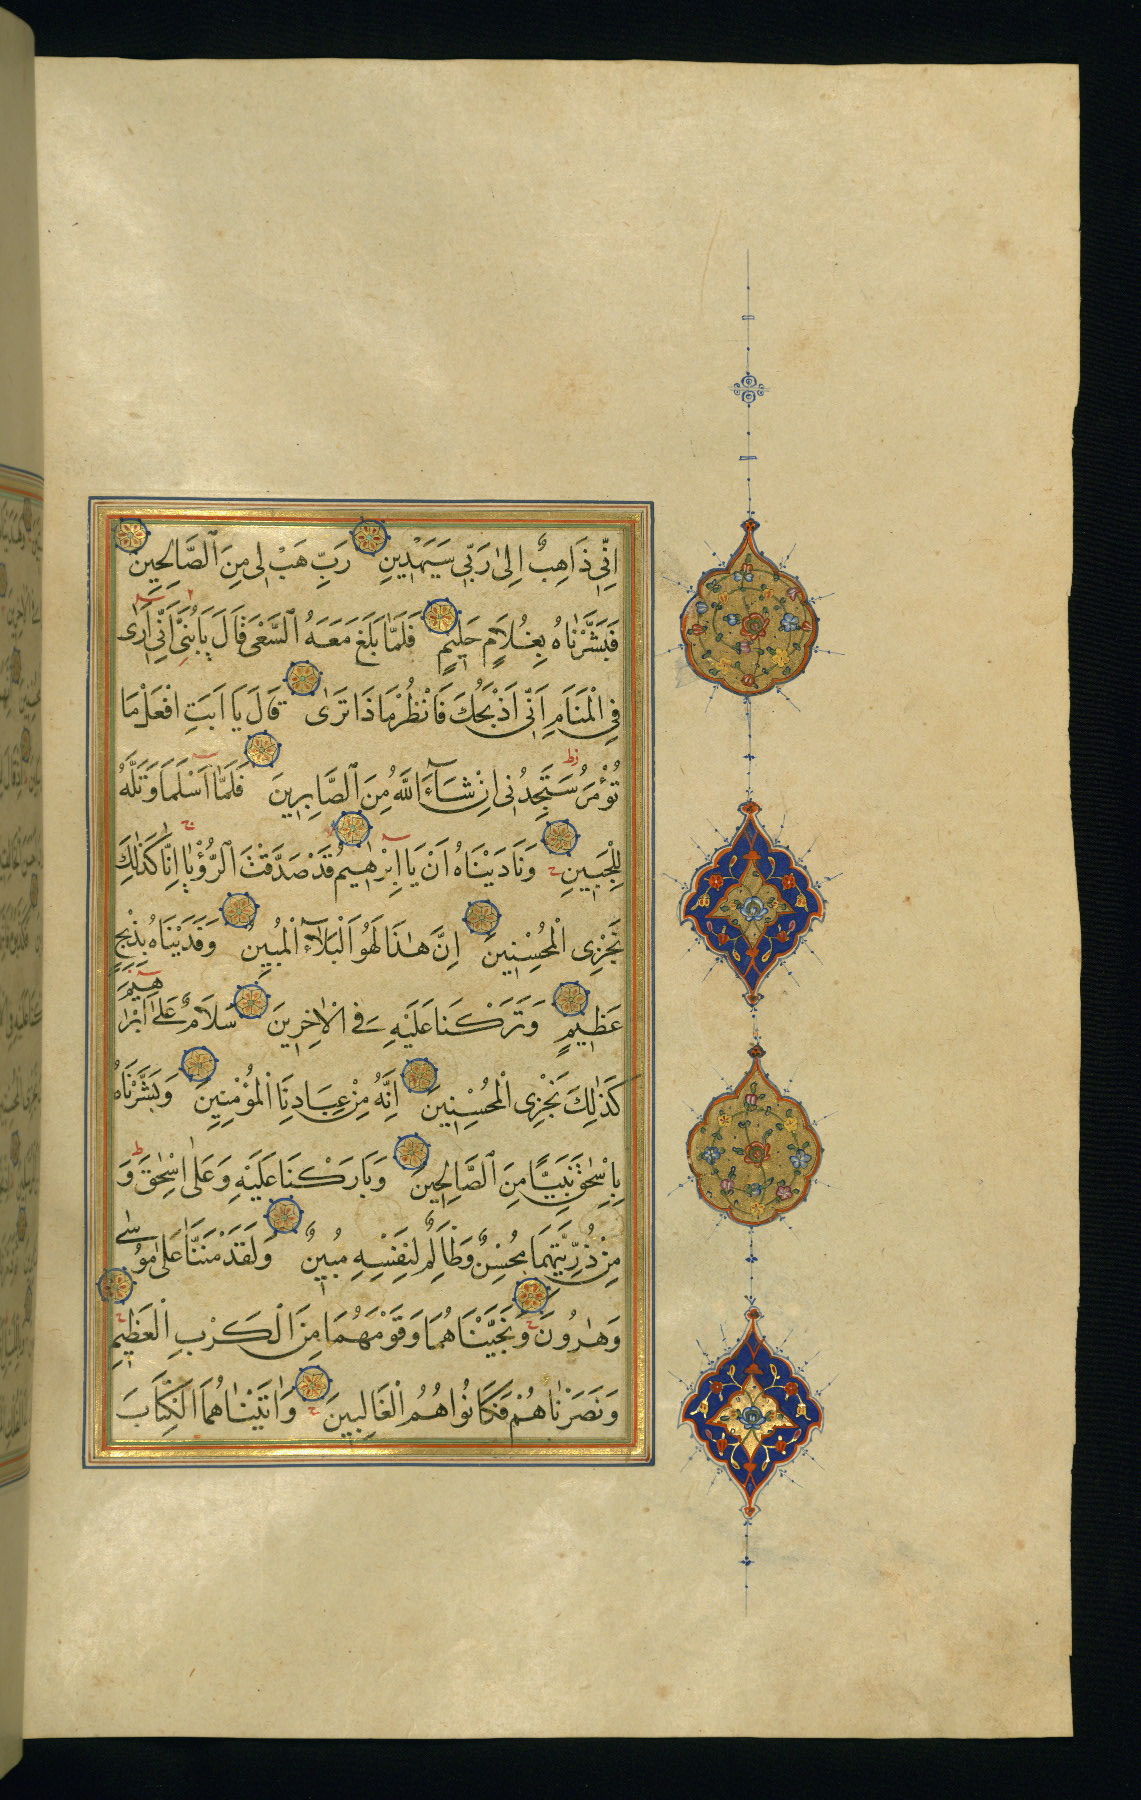 اِنِّى ذَاهِبٌ اِلىٰ رَبِّى سَيَهْدِينِ رَبِّ هَبْ لِى مِنَ ٱلصَّالِحِينَ
فَبَشَّرْنَاهُ بِغُلَامٍ حَلِيمٍ فَلَمَّا بَلَغَ مَعَهُ ٱلسَّعْىَ قَالَ يَابُنَىَّ اِنِّى اَرٰى
فِى الْمَنَامِ اَنِّى اَذْبَحُكَ فَانْظُرْ مَاذَا تَرٰى قَالَ يَا اَبَتِ افْعَلْ مَا
تُؤْمَرُ سَتَجِدُنِى اِنْ شَآءَ اللَّهُ مِنَ ٱلصَّابِرِينَ فَلَمَّا اَسْلَمَا وَتَلَّهُ
لِلْجَبِينِ وَنَادَيْنَاهُ اَنْ يَا اِبْرٰهِيمُ قَدْ صَدَّقْتَ ٱلرُّؤْيَا اِنَّا كَذٰلِكَ
نَجْزِى الْمُحْسِنِينَ اِنَّ هٰذَا لَهُوَ الْبَلَآءُ الْمُبِينُ وَفَدَيْنَاهُ بِذِبْحٍ
عَظِيمٍ وَتَرَكْنَا عَلَيْهِ فِى الْاٰخِرِينَ سَلَامٌ عَلىٰ اِبْرٰهِيمَ
كَذٰلِكَ نَجْزِى الْمُحْسِنِينَ اِنَّهُ مِنْ عِبَادِنَا الْمُؤْمِنِينَ وَبَشَّرْنَاهُ
بِاِسْحٰقَ نَبِيًّا مِنَ ٱلصَّالِحِينَ وَبَارَكْنَا عَلَيْهِ وَعَلىٰ اِسْحٰقَ وَ
مِنْ ذُرِّيَّتِهِمَا مُحْسِنٌ وَظَالِمٌ لِنَفْسِهِ مُبِينٌ وَلَقَدْ مَنَنَّا عَلىٰ مُوسٰى
وَهٰرُونَ وَنَجَّيْنَاهُمَا وَقَوْمَهُمَا مِنَ الْكَرْبِ الْعَظِيمِ
وَنَصَرْنَاهُمْ فَكَانُوا هُمُ الْغَالِبِينَ وَاٰتَيْنَاهُمَا الْكِتَابَ